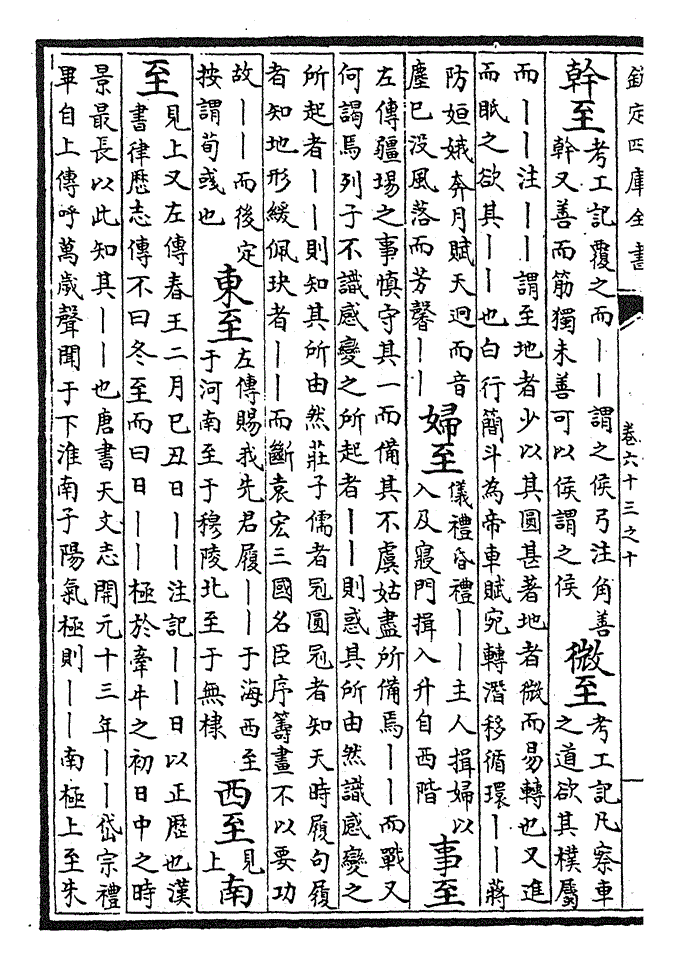 欽定四庫全書
卷六十三之十
幹至
考工記覆之而——謂之侯弓注角善
幹又善而筋獨未善可以侯謂之侯
微至
考工記凡察車
之道欲其樸屬
而——注——謂至地者少以其圓甚著地者微而易轉也又進
而眡之欲其——也白行簡斗為帝車賦宛轉潛移循環——蔣
防姮娥奔月賦天迥而音
塵已没風落而芳馨——
婦至
儀禮昏禮——主人揖婦以
入及寢門揖入升自西階
事至
左傳疆埸之事慎守其一而備其不虞姑盡所備焉——而戰又
何謁焉列子不識感變之所起者——則惑其所由然識感變之
所起者——則知其所由然莊子儒者冠圓冠者知天時履句履
者知地形緩佩玦者——而斷袁宏三國名臣序籌畫不以要功
故——而後定
按謂荀彧也
東至
左傳賜我先君履——于海西至
于河南至于穆陵北至于無棣
西至
見
上
南
至
見上又左傳春王二月己丑日——注記——日以正歷也漢
書律歷志傳不曰冬至而曰日——極於牽牛之初日中之時
景最長以此知其——也唐書天文志開元十三年——岱宗禮
畢自上傳呼萬歲聲聞于下淮南子陽氣極則——南極上至朱